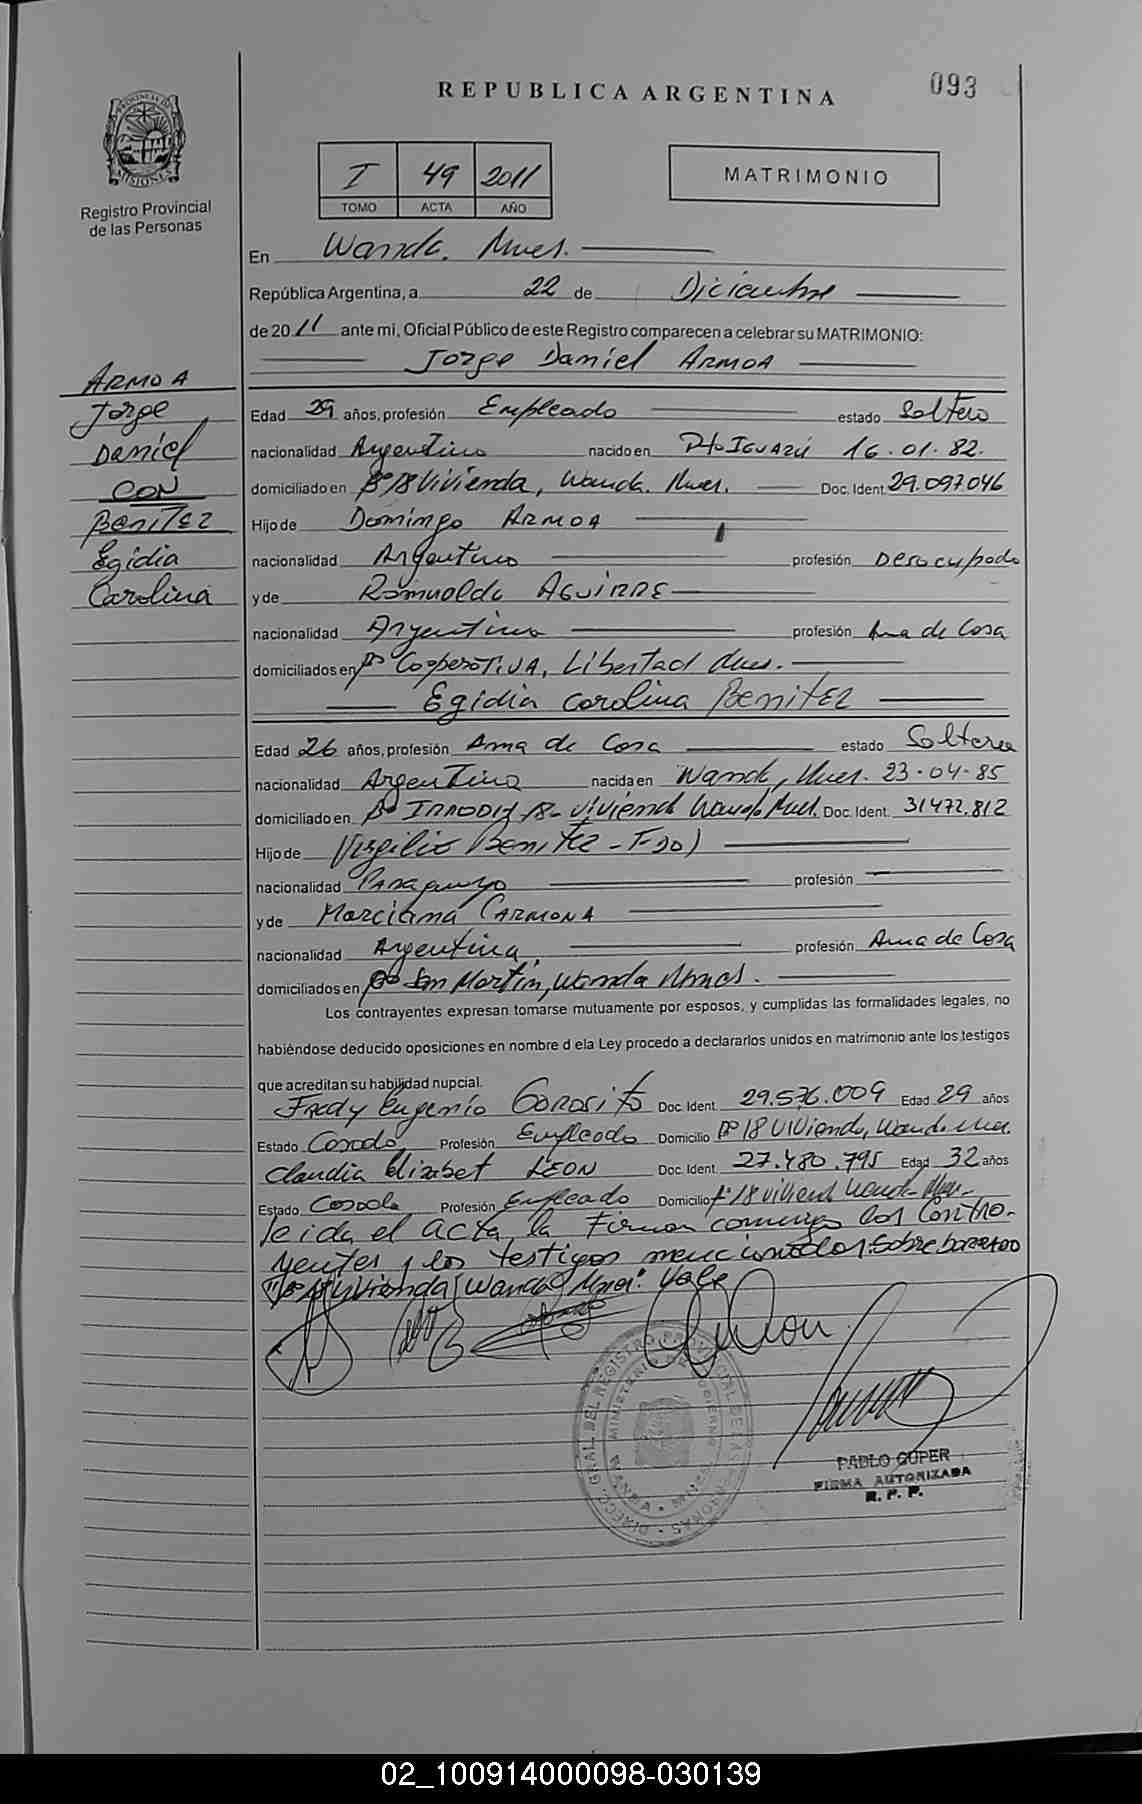 REPUBLICA ARGENTINA
093
PROVINCIA DE MISIONES
Registro Provincial
de las Personas
I 49 2011
TOMO ACTA AÑO
MATRIMONIO
En Wanda. Mnes.
República Argentina, a 22 de Diciembre
de 2011 ante mi, Oficial Público de este Registro comparecen a celebrar su MATRIMONIO:
Jorge Daniel ARMOA
ARMOA
Jorge
Daniel
CON
BENITEZ
Egidia
Carolina
Edad 29 años, profesión Empleado estado Soltero
nacionalidad Argentino nacido en Pto IGUAZÚ 16.01.82.
domiciliado en Bº 18 Vivienda, Wanda. Mnes. Doc. Ident. 29.097.046
Hijo de Domingo ARMOA
nacionalidad Argentino profesión Desocupado
y de Romualda AGUIRRE
nacionalidad Argentina profesión Ama de Casa
domiciliados en Bº COOPERATIVA, Libertad Mnes.
Egidia Carolina BENITEZ
Edad 26 años, profesión Ama de Casa estado Soltera
nacionalidad Argentina nacida en Wanda, Mnes. 23-04-85
domiciliado en Bº 18 - Vivienda Wanda Mnes. Doc. Ident. 31472.812
Hijo de Virgilio Benitez - F-DO)
nacionalidad Paraguayo profesión
y de Marciana CARMONA
nacionalidad Argentina, profesión Ama de Casa
domiciliados en Bº San Martín, Wanda Mnes.
Los contrayentes expresan tomarse mutuamente por esposos, y cumplidas las formalidades legales, no
habiéndose deducido oposiciones en nombre d ela Ley procedo a declararlos unidos en matrimonio ante los testigos
que acreditan su habilidad nupcial.
Fredy Eugenio GOROSITO Doc. Ident. 29.576.009 Edad 29 años
Estado Casado Profesión Empleado Domicilio Bº 18 Vivienda, Wanda Mnes.
Claudia Elizabet LEON Doc. Ident. 27.480.795 Edad 32 años
Estado Casada Profesión Empleado Domicilio Bº 18 Viviend Wanda Mnes.
leida el acta, la Firman conmigo los Contra-
yentes y los testigos mencionados: Sobre borrado
"Bº 18 Vivienda, Wanda Mnes". Vale
DIRECC. GRAL. DEL REGISTRO PROVINCIAL DE LAS PERSONAS
MINISTERIO DE GOBIERNO
WANDA - MNES.
PABLO GUPER
FIRMA AUTORIZADA
R. P. P.
02_100914000098-030139